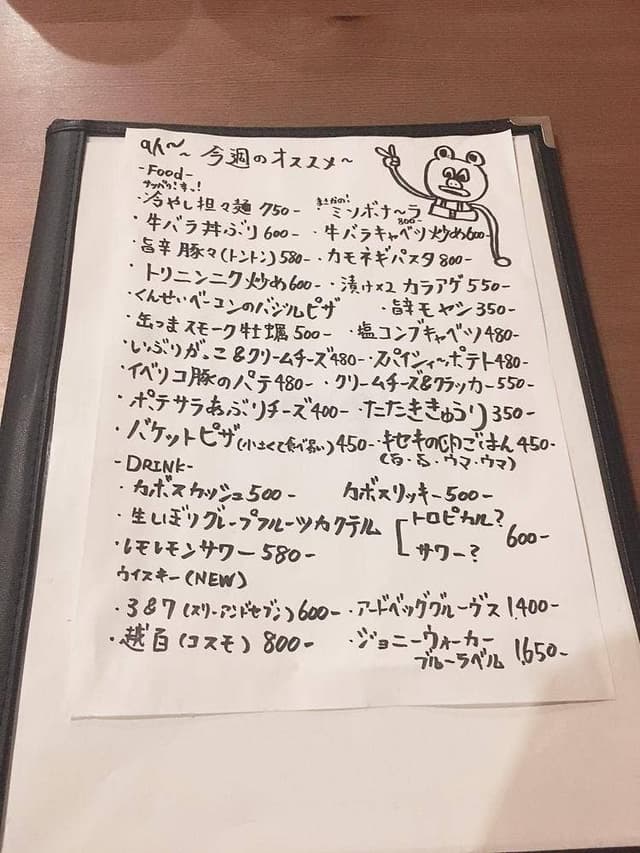 今週のオススメ~
-Food-
サッパリ!すっ!
・冷やし担々麺 750- まさかの!
・ミソボナ~ラ 800-
・牛バラ丼ぶり 600- ・牛バラキャベツ炒め 600-
・旨辛豚々(トントン) 580- ・カモネギパスタ 800-
・トリニンニク炒め 600- ・漬け×2 カラアゲ 550-
・くんせいベーコンのバジルピザ ・旨辛モヤシ 350-
・缶つまスモーク牡蠣 500- ・塩コンブキャベツ 480-
・いぶりがっこ&クリームチーズ 480- ・スパイシィ~ポテト 480-
・イベリコ豚のパテ 480- ・クリームチーズ&クラッカー 550-
・ポテサラあぶりチーズ 400- ・たたききゅうり 350-
・バケットピザ(小さくて食べ易い) 450- ・キセキの卵ごはん 450-
(白・S・ウマ・ウマ)
-DRINK-
・カボスカッシュ 500- カボスリッキー 500-
・生しぼりグレープフルーツカクテル [トロピカル? サワー? 600-
・レモレモンサワー 580-
ウイスキー(NEW)
・3&7(スリーアンドセブン) 600- ・アードベッググルーヴス 1,400-
・越百(コスモ) 800- ・ジョニーウォーカー
ブルーラベル 1,650-